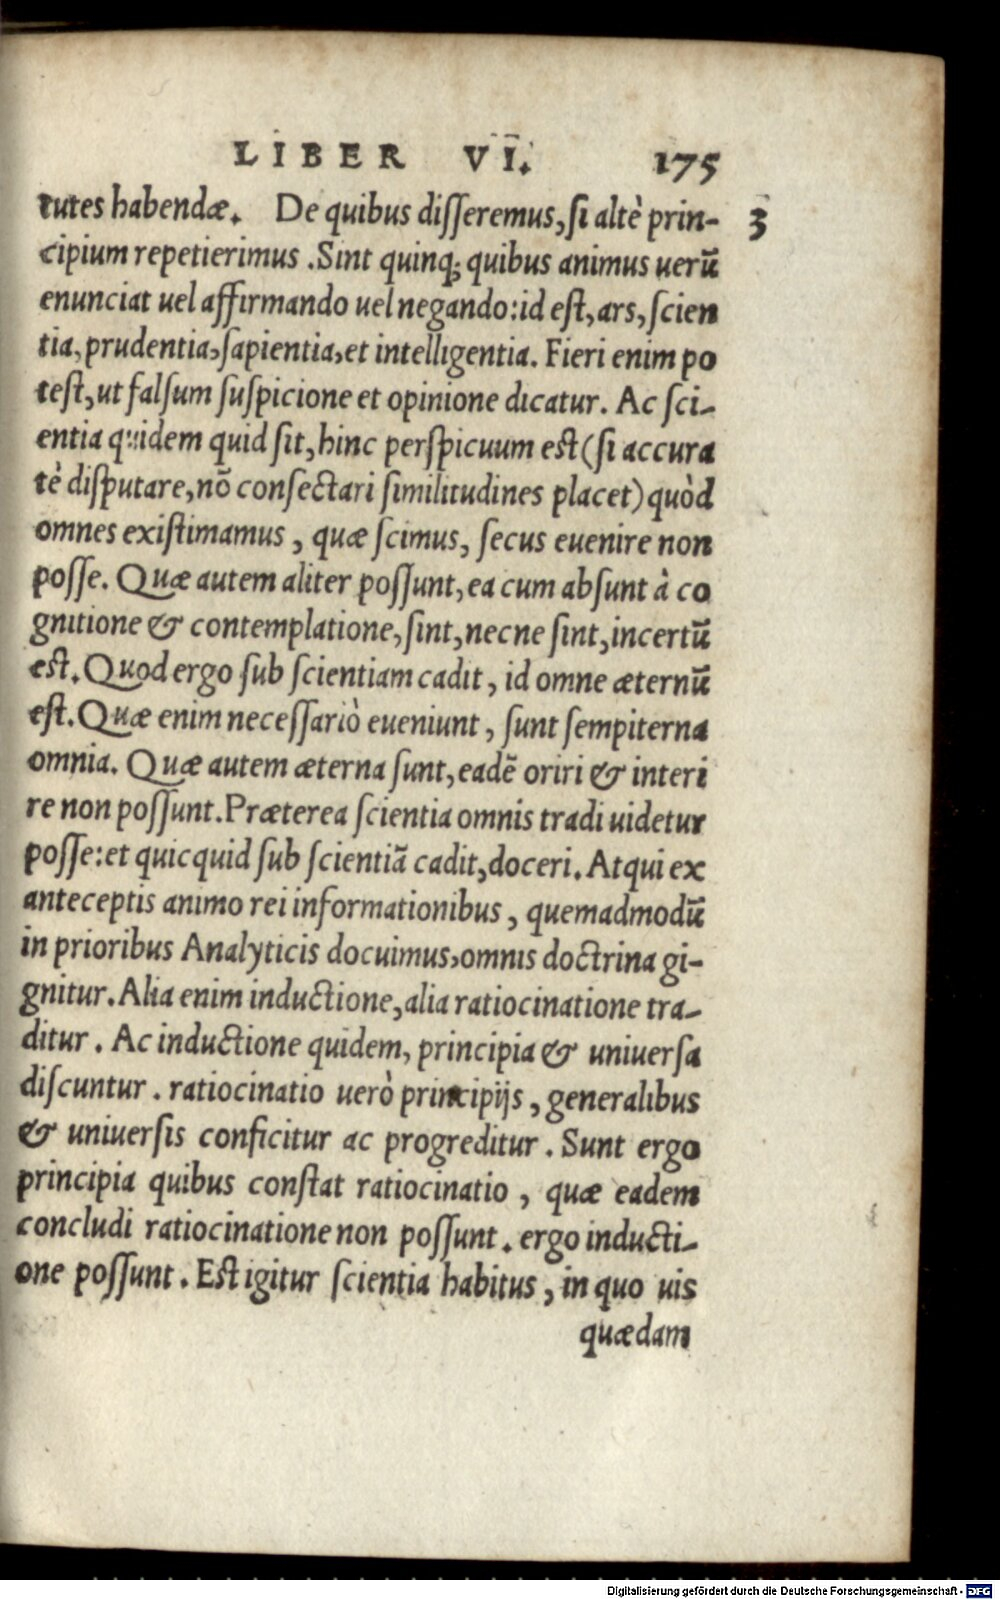 LIBER VI. 175
tutes habendæ. De quibus disseremus, si altè prin- 3
cipium repetierimus. Sint quinq; quibus animus uerū
enunciat uel affirmando uel negando: id est, ars, scien
tia, prudentia, sapientia, et intelligentia. Fieri enim po
test, ut falsum suspicione et opinione dicatur. Ac sci-
entia quidem quid sit, hinc perspicuum est (si accura
tè disputare, nō consectari similitudines placet) quòd
omnes existimamus, quæ scimus, secus euenire non
posse. Quæ autem aliter possunt, ea cum absunt à co
gnitione & contemplatione, sint, necne sint, incertū
est. Quod ergo sub scientiam cadit, id omne æternū
est. Quæ enim necessariò eueniunt, sunt sempiterna
omnia. Quæ autem æterna sunt, eadē oriri & interi
re non possunt. Præterea scientia omnis tradi uidetur
posse: et quicquid sub scientiā cadit, doceri. Atqui ex
anteceptis animo rei informationibus, quemadmodū
in prioribus Analyticis docuimus, omnis doctrina gi-
gnitur. Alia enim inductione, alia ratiocinatione tra-
ditur. Ac inductione quidem, principia & uniuersa
discuntur. ratiocinatio uerò principijs, generalibus
& uniuersis conficitur ac progreditur. Sunt ergo
principia quibus constat ratiocinatio, quæ eadem
concludi ratiocinatione non possunt. ergo inducti-
one possunt. Est igitur scientia habitus, in quo uis
quædam
Digitalisierung gefördert durch die Deutsche Forschungsgemeinschaft - DFG